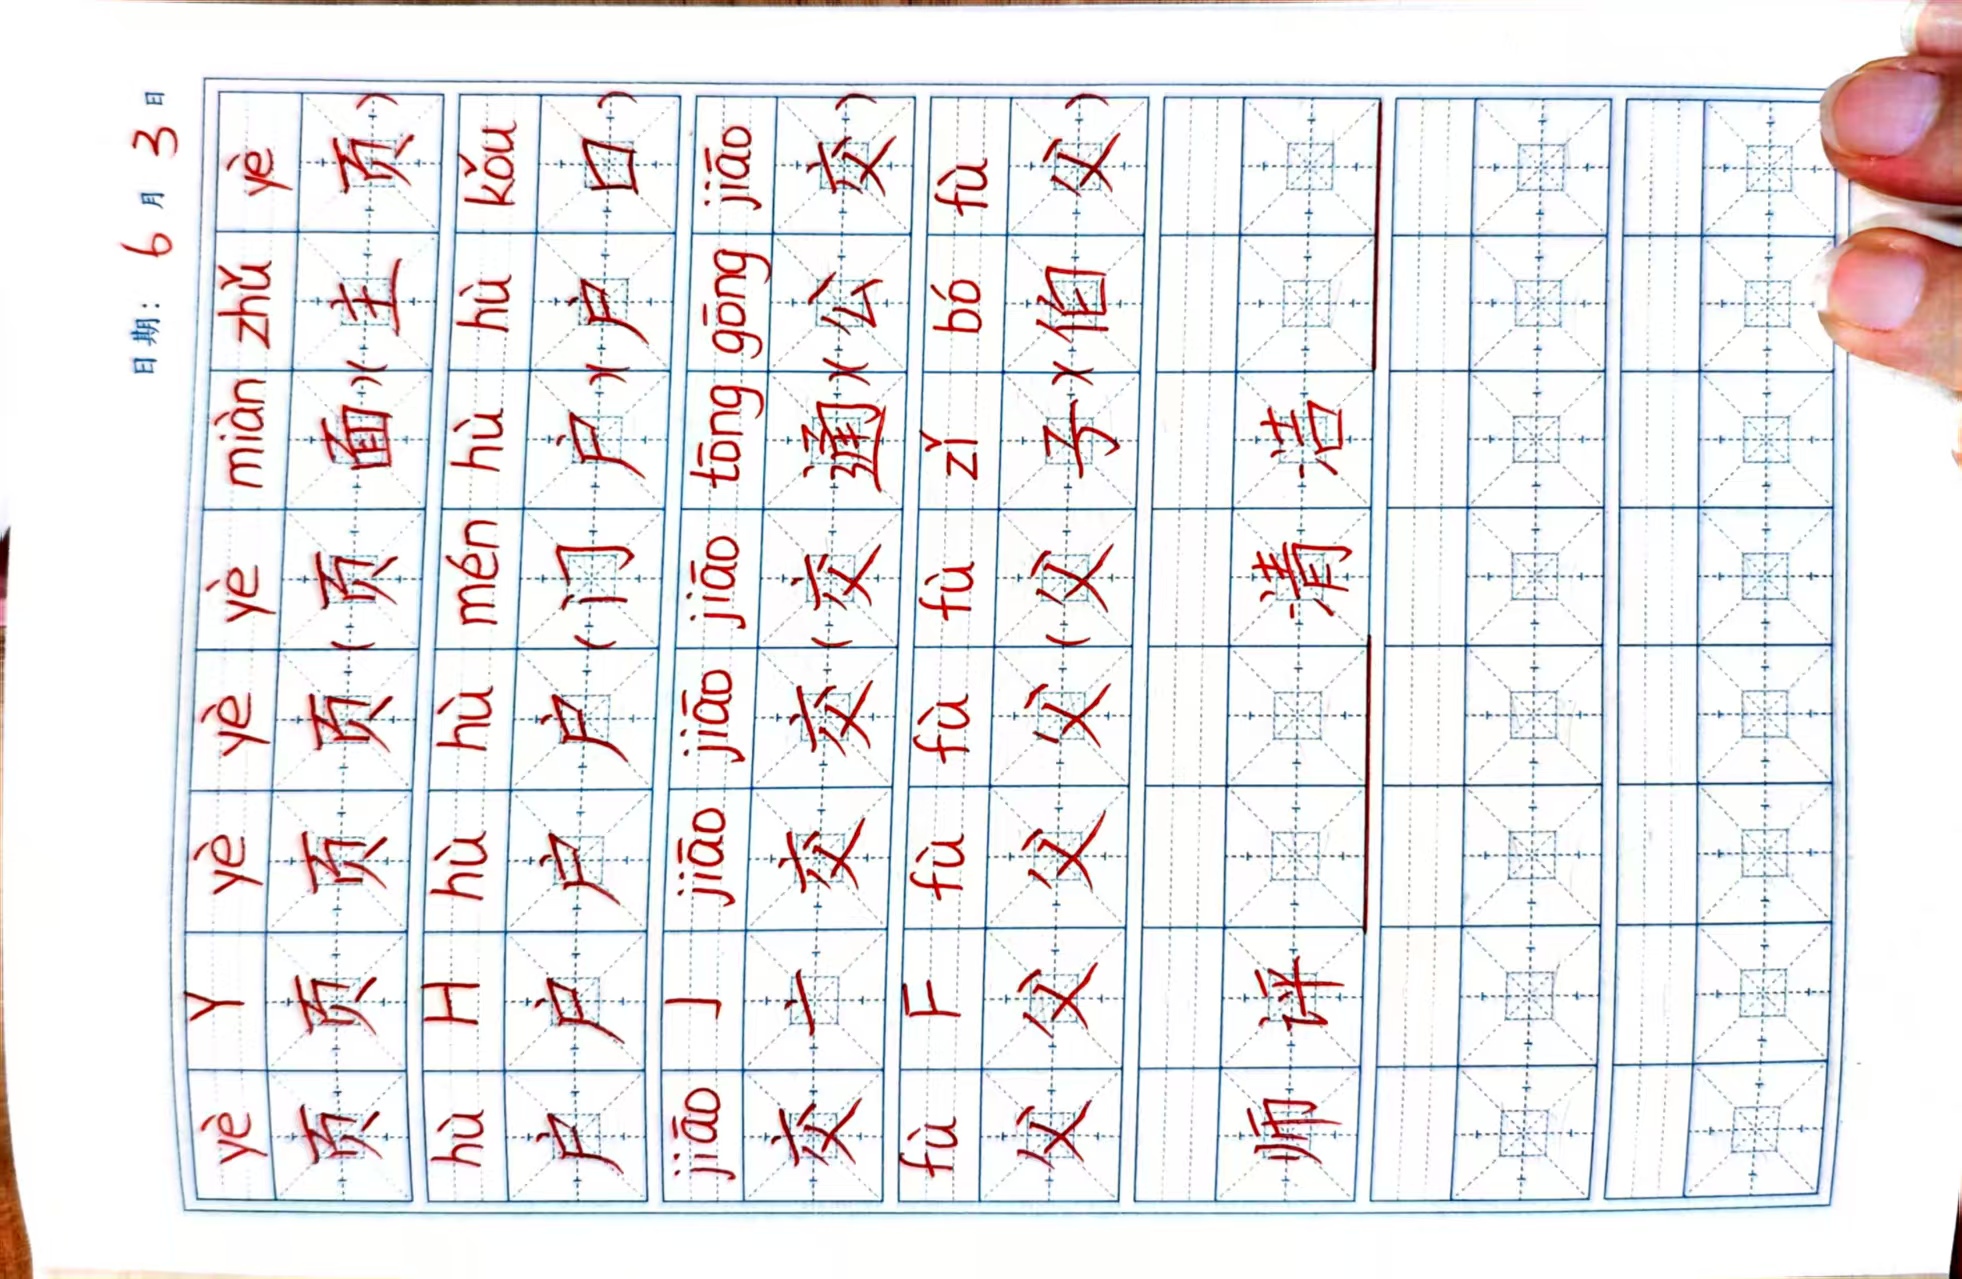 日期：6月3日
yè Y yè yè yè miàn zhǔ yè
页 页 页 页 (页 面)(主 页)
hù H hù hù mén hù hù kǒu
户 户 户 户 (门 户)(户 口)
jiāo J jiāo jiāo jiāo tōng gōng jiāo
交 亠 交 交 (交 通)(公 交)
fù F fù fù fù zǐ bó fù
父 父 父 父 (父 子)(伯 父)
师 评 清 洁